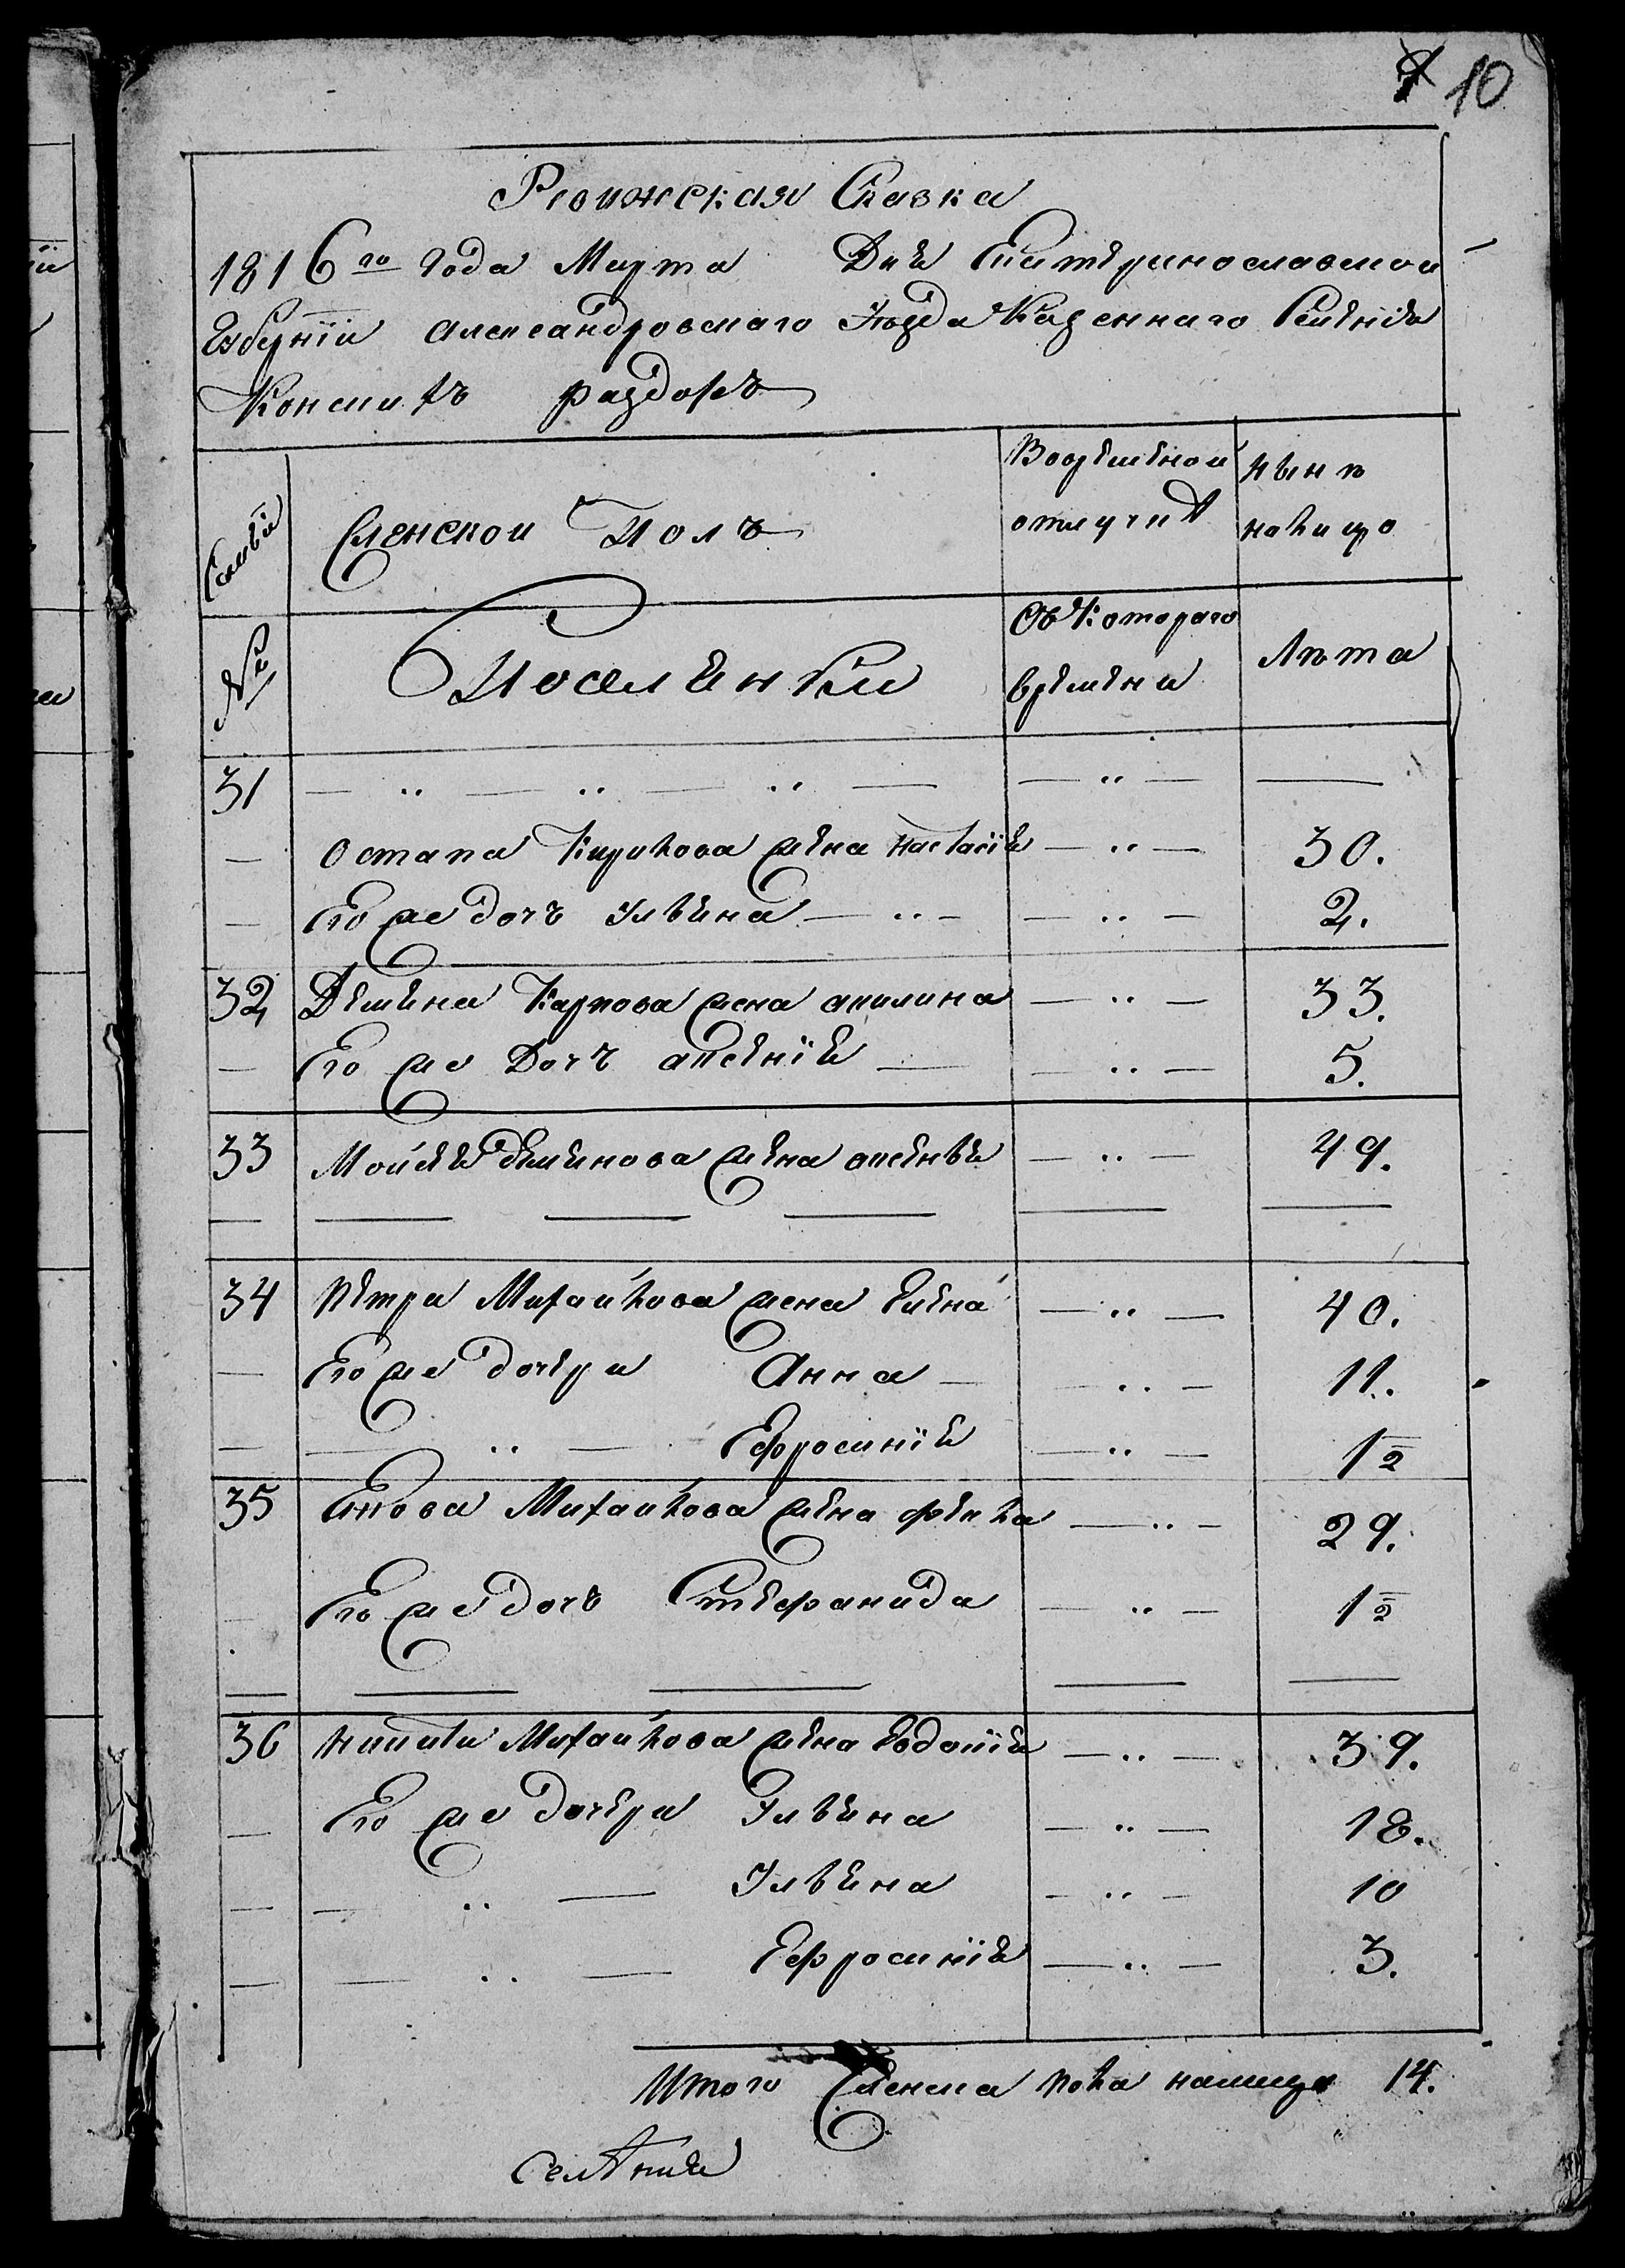 10
Ревижская Сказка
1816го года Марта Дня Екатеринославской
Губерніи Александровскаго Уезда Казеннаго Селенія
Конскихъ раздоръ
Семьи
Женской Полъ
Вовременной отлучкѣ
нынѣ налицо
№
Поселянки
Съ Котораго времени
Лѣта
31 — „ — „ — „ — — „ — —
— Остапа Кирилова жена настасія — „ — 30.
— Его же дочь Ульяна — „ — — „ — 2.
32 Демяна Карпова жена акилина — „ — 33.
— Его же Дочь аксенія — — „ — 5.
33 Мойсея демянова жена аксенья — „ — 49.
34 Петра Михайлова жена Елена — „ — 40.
— Его же дочери Анна — — „ — 11.
— — „ — Ефросинія — „ — 1½
35 Якова Михайлова жена фекла — „ — 29.
— Его же дочь Стефанида — „ — 1½
36 Никиты Михайлова жена Евдокія — „ — 39.
— Его же дочери Ульяна — „ — 18.
— — „ — Ульяна — „ — 10
— — „ — Ефросинія — „ — 3.
Итого Женска пола налицо 14.
Селѣнія